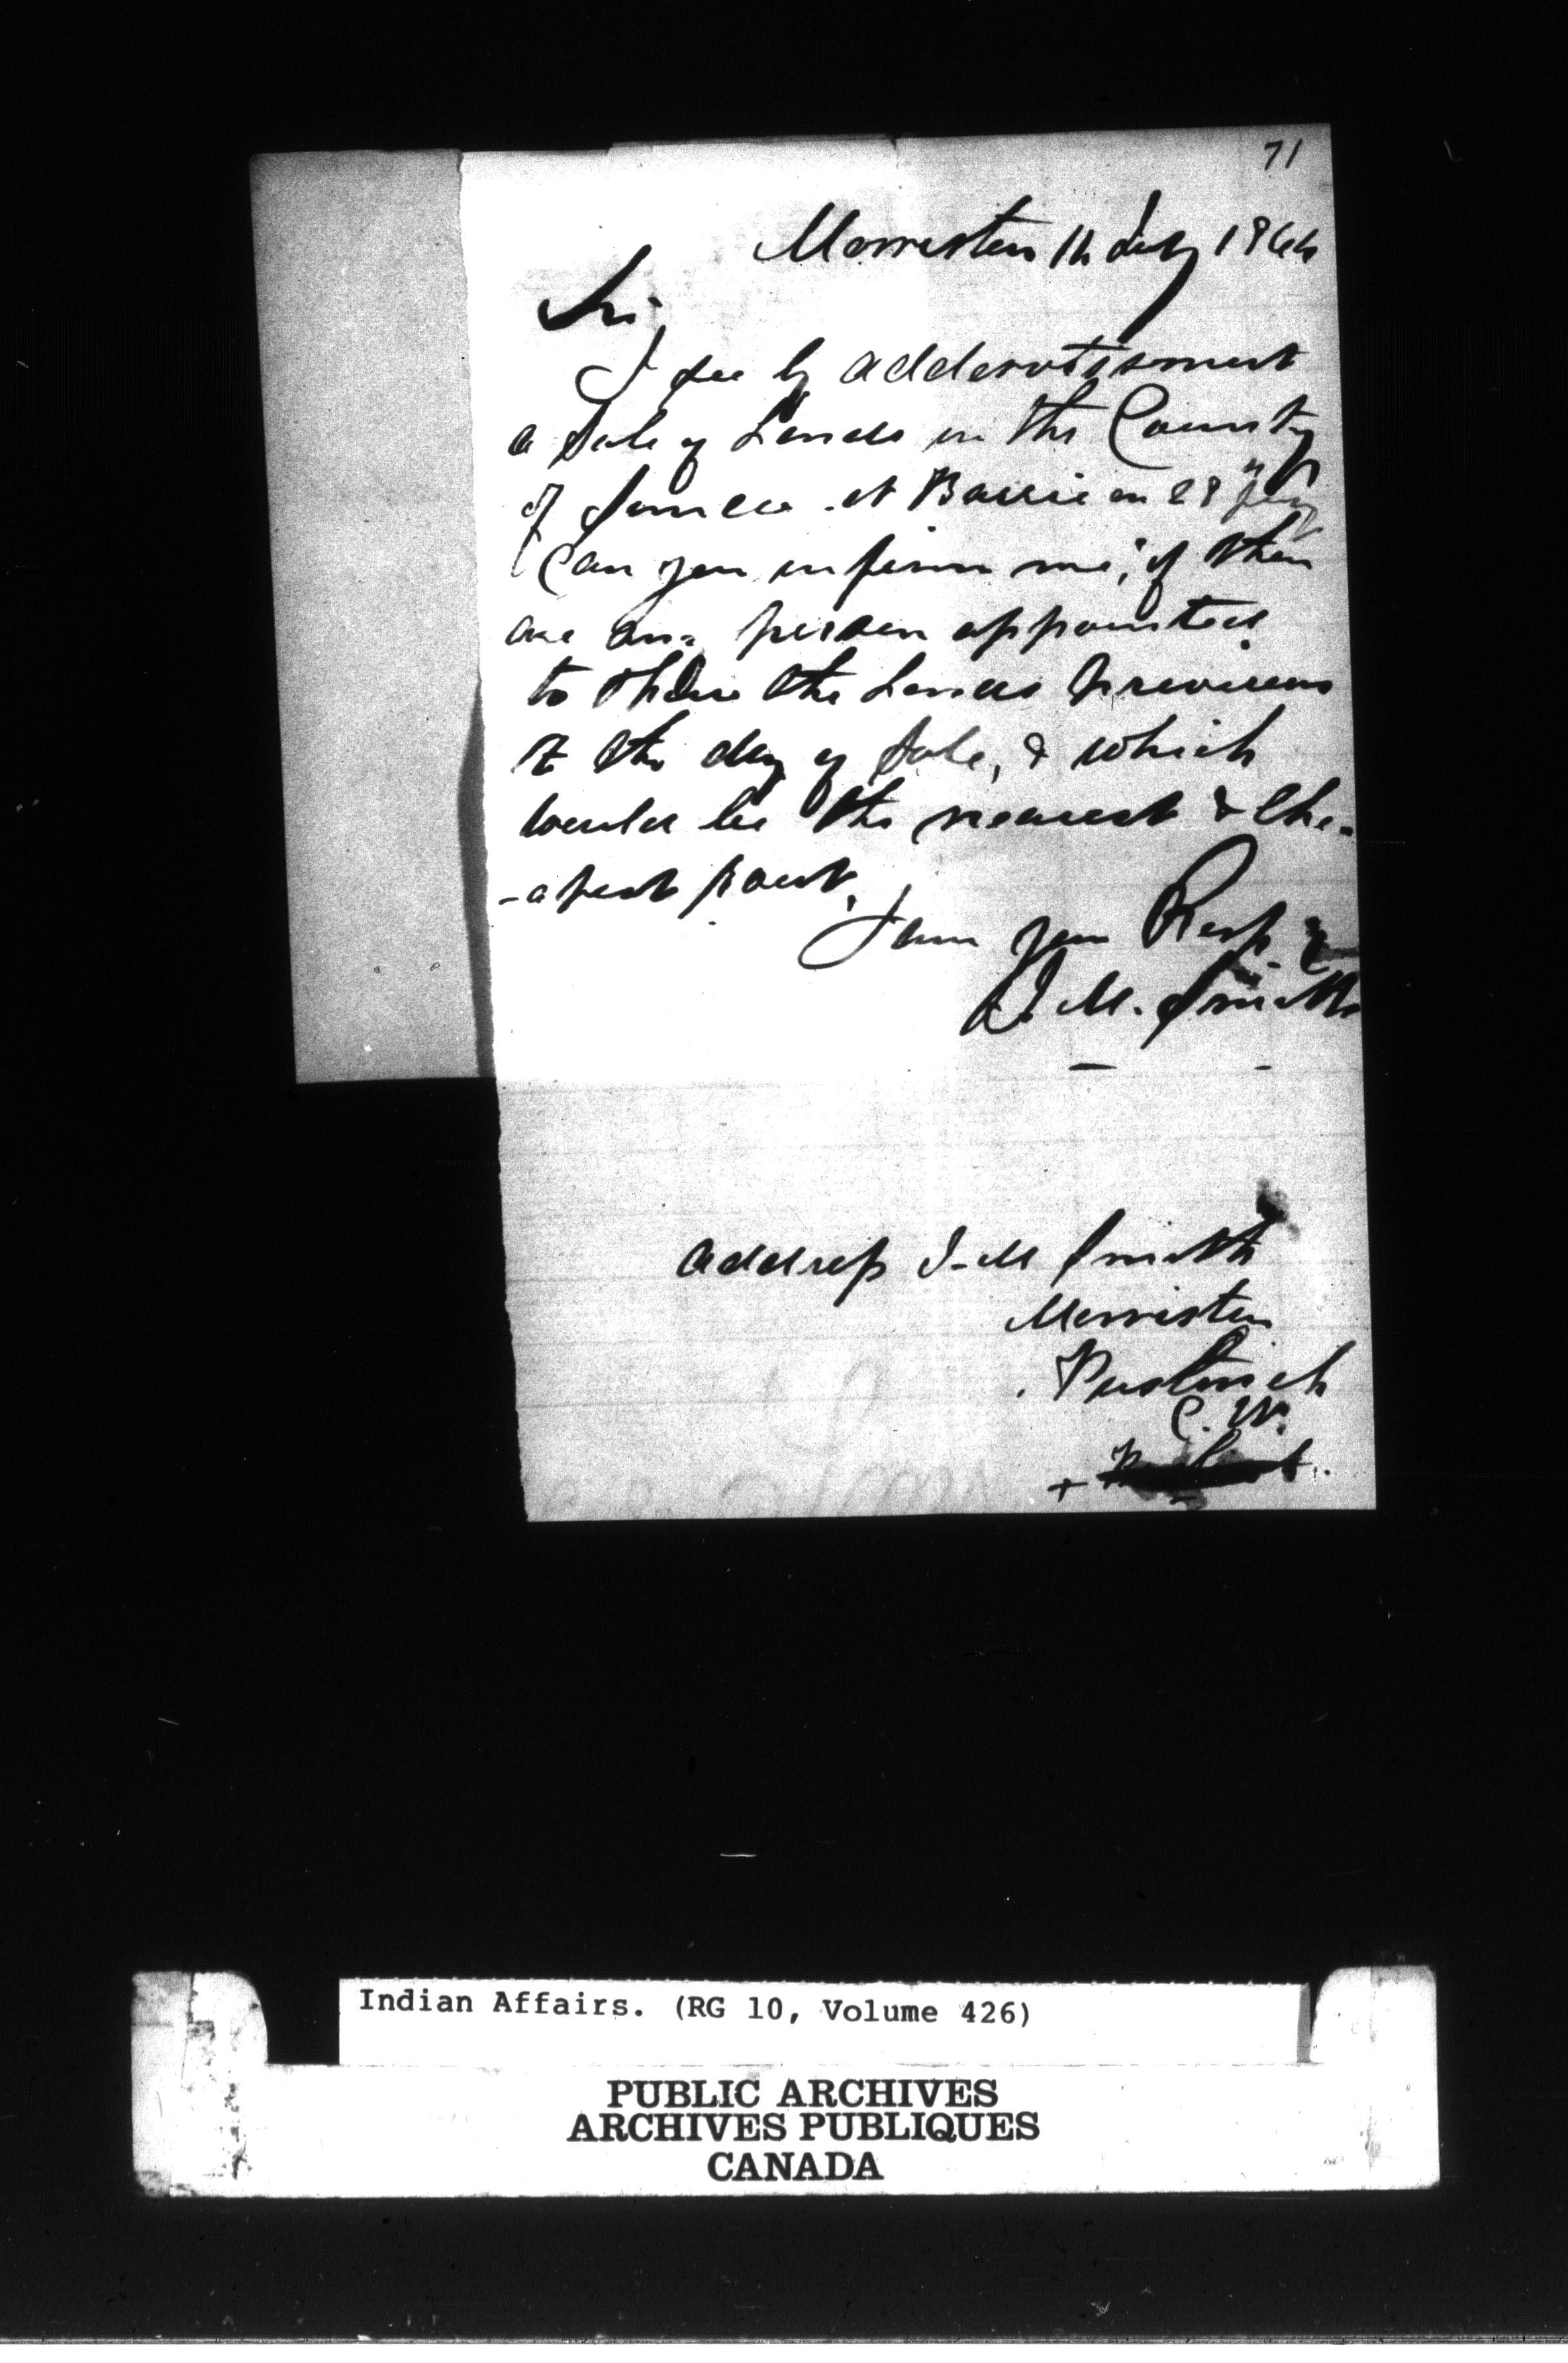 71
Morriston 11 July 1864
Sir,
I see by addervotissment
a Sale of Lands in the County
of Simcoe at Barrie on 28
Can you inform me, if their
are any person appointed
to Shew the Lands previous
to the day of Sale, & which
would be the nearest & Che-
-apest Rout,
I am your Resp
J. M. Smith
address J. M Smith
Morriston
Puslinch
C. W.
Indian Affairs. (RG 10, Volume 426)
PUBLIC ARCHIVES
ARCHIVES PUBLIQUES
CANADA